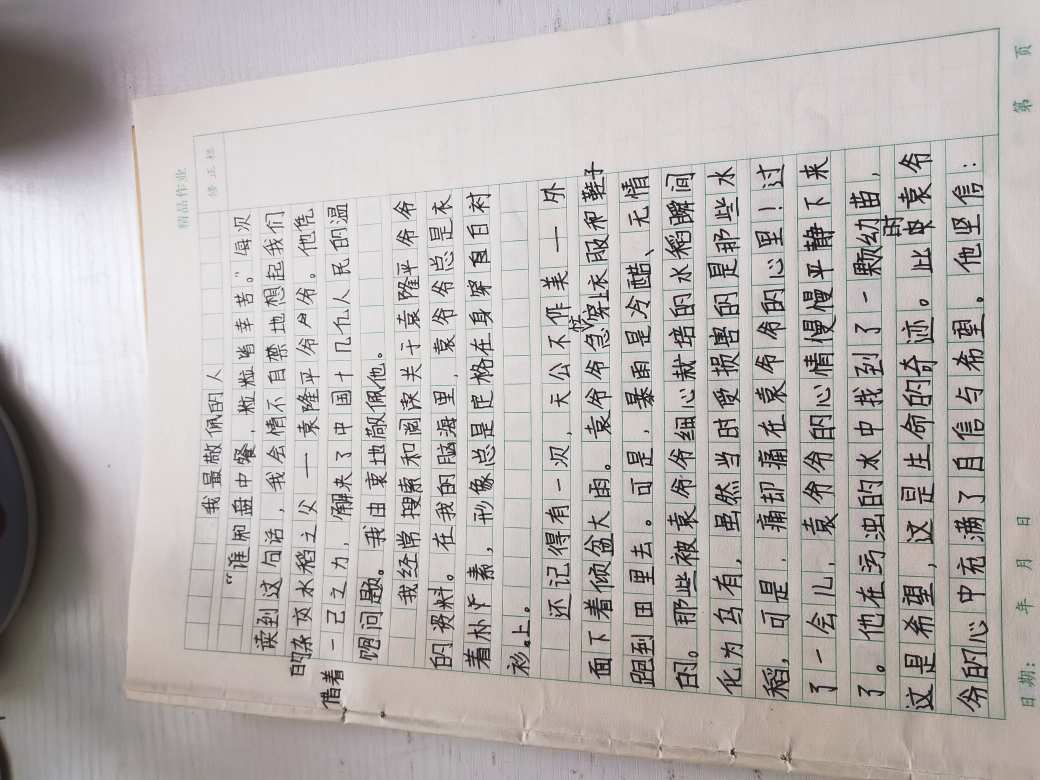 精品作业
修正栏
我最敬佩的人
“谁知盘中餐，粒粒皆辛苦。”每次
读到这句话，我会情不自禁地想起我们
的杂交水稻之父——袁隆平爷爷。他凭
借着一己之力，解决了中国十几亿人民的温
饱问题。我由衷地敬佩他。
我经常搜索和阅读关于袁隆平爷爷
的资料。在我的脑海里，袁爷爷总是衣
着朴素，形象总是定格在身穿白衬
衫上。
还记得有一次，天公不作美——外
面下着倾盆大雨。袁爷爷急忙穿上衣服和鞋子
跑到田里去。可是，暴雨是冷酷、无情
的。那些被袁爷爷细心栽培的水稻瞬间
化为乌有，虽然当时受损害的是那些水
稻，可是，痛却痛在袁爷爷的心里！过
了一会儿，袁爷爷的心情慢慢平静下来
了。他在污浊的水中找到了一颗幼苗，
这是希望，这是生命的奇迹。此时袁爷
爷的心中充满了自信与希望，他坚信：
日期： 年 月 日 第 页